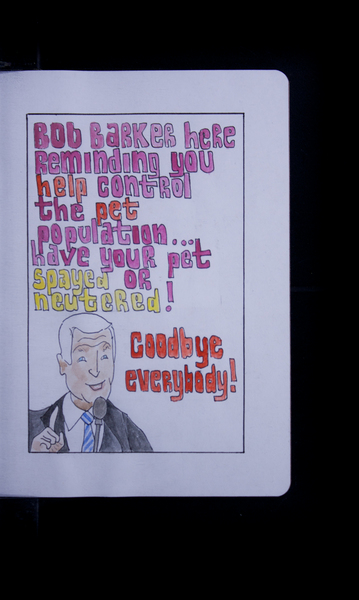 BOB BARKER here
reminding you
help control
the pet
population...
have your pet
spayed or
neutered!
Goodbye
everybody!